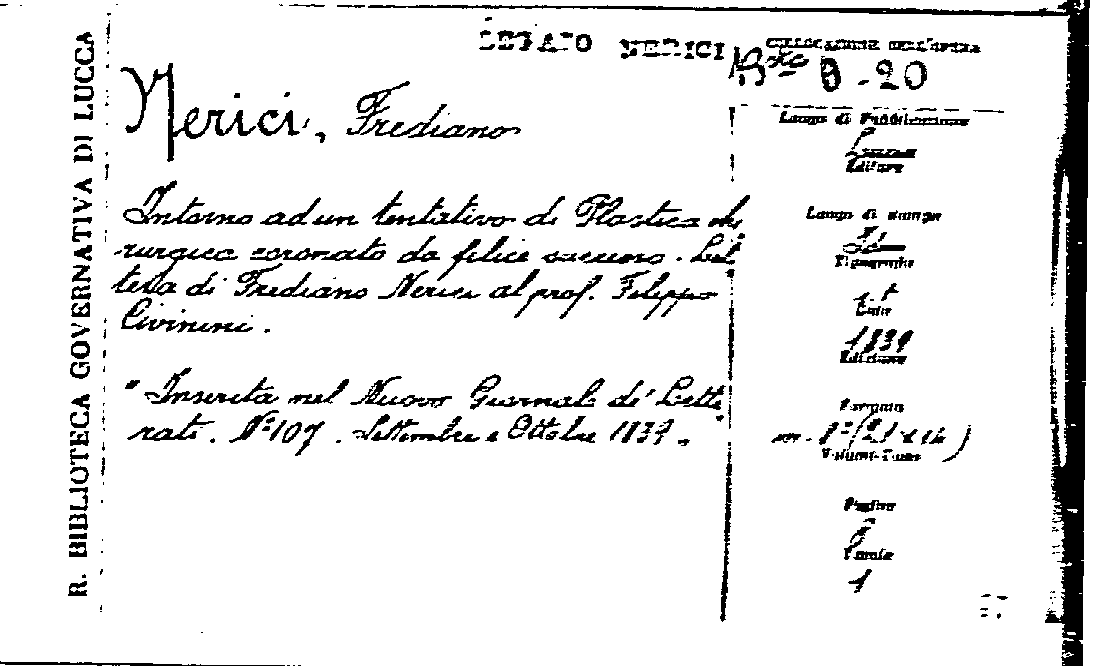 R. BIBLIOTECA GOVERNATIVA DI LUCCA
LEGATO NERICI
COLLOCAZIONE DELL'OPERA
Bta 9-20
Nerici, Frediano
Intorno ad un tentativo di Plastica chi
rurgica coronato da felice successo. Let
tera di Frediano Nerici al prof. Filippo
Civinini.
"Inserita nel Nuovo Giornale de' Lette
rati. N° 107. Settembre e Ottobre 1839.
Luogo di Pubblicazione
Lucca
Editore
Luogo di stampa
Id.
Tipografia
s. t.
Data
1839
Edizione
Formato
in-8°
Volumi-Tomi
Pagine
8
Tavole
1